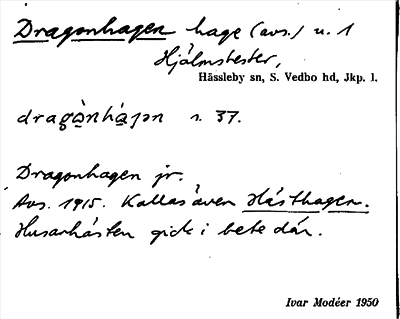 Dragonhagen hage (avs.) u. 1
Hjälmseter,
Hässleby sn, S. Vedbo hd, Jkp. l.
dragònhàgən s. 37.
Dragonhagen jr.
Avs. 1915. Kallas även Hästhagen.
Husarhästen gick i bete där.
Ivar Modéer 1950